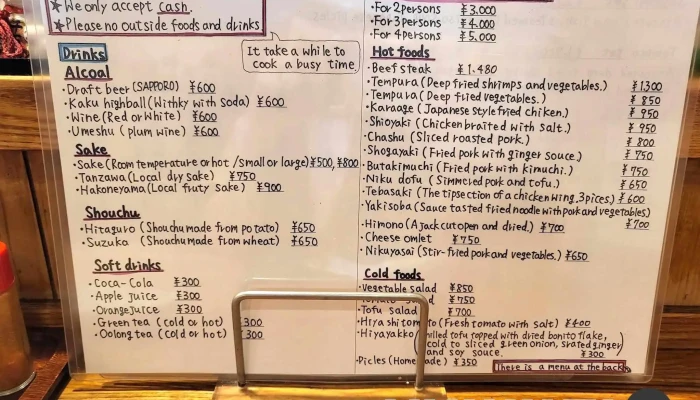 ★We only accept cash.
★Please no outside foods and drinks
It take a while to
cook a busy time
Drinks
Alcoal
・Draft beer (SAPPORO) ¥600
・Kaku highball (Withky with soda) ¥600
・Wine (Red or White) ¥600
・Umeshu (plum wine) ¥600
Sake
・Sake (Room temperature or hot /small or large) ¥500, ¥800
・Tanzawa (Local dry sake) ¥750
・Hakoneyama (Local fruty sake) ¥900
Shouchu
・Hitaguro (Shouchu made from potato) ¥650
・Suzuka (Shouchu made from wheat) ¥650
Soft drinks
・Coca-Cola ¥300
・Apple Juice ¥300
・Orange Juice ¥300
・Green tea (cold or hot) 300
・Oolong tea (cold or hot) 300
・For 2 persons ¥3.000
・For 3 persons ¥4.000
・For 4 persons ¥5.000
Hot foods
・Beef steak ¥1.480
・Tempura (Deep fried shrimps and vegetables.) ¥1300
・Tempura (Deep fried vegetables.) ¥850
・Karaage (Japanese style fried chiken.) ¥950
・Shioyaki (Chicken braited with salt.) ¥950
・Chashu (Sliced roasted pork.) ¥800
・Shogayaki (Fried pork with ginger souce.) ¥750
・Butakimuchi (Fried pork with kimuchi.) ¥750
・Niku dofu (Simmered pork and tofu.) ¥650
・Tebasaki (The tip section of a chicken wing, 3pices.) ¥600
・Yakisoba (Sauce tasted fried noodle with pork and vegetables) ¥700
・Himono (A jack cut open and dried.) ¥700
・Cheese omlet ¥750
・Nikuyasai (Stir-fried pork and vegetables.) ¥650
Cold foods
・Vegetable salad ¥850
¥750
・Tofu salad ¥700
・Hiyashi tomato (Fresh tomato with salt) ¥400
・Hiyayakko (hilled tofu topped with dried bonito flake,
cold to sliced green onion, srated ginger
and soy souce. ¥300
・Picles (Home ade) ¥350
There is a menu at the back